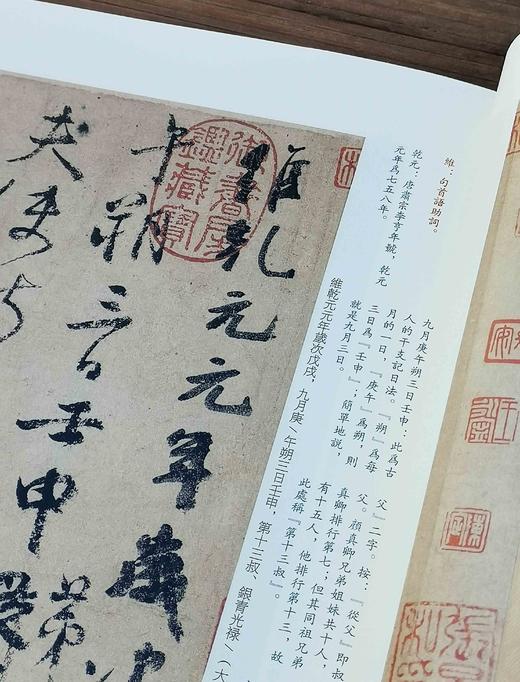 維：句首語助詞。
乾元：唐肅宗李亨年號，乾元
元年爲七五八年。
九月庚午朔三日壬申：此爲古
人的干支記日法。『朔』爲每
月的一日，『庚午』爲朔，則
三日爲『壬申』；簡單地說，
就是九月三日。
父』二字。按：『從父』即叔
父。顏真卿兄弟姊妹共十人，
真卿排行第七；但其同祖兄弟
有十五人，他排行第十三，故
此處稱『第十三叔』。
維乾元元年歲次戊戌，九月庚\午朔三日壬申，第十三叔、銀青光祿\（大
維乾元元年歲次
午朔三日壬申第
夫使
御書房鑑藏寶